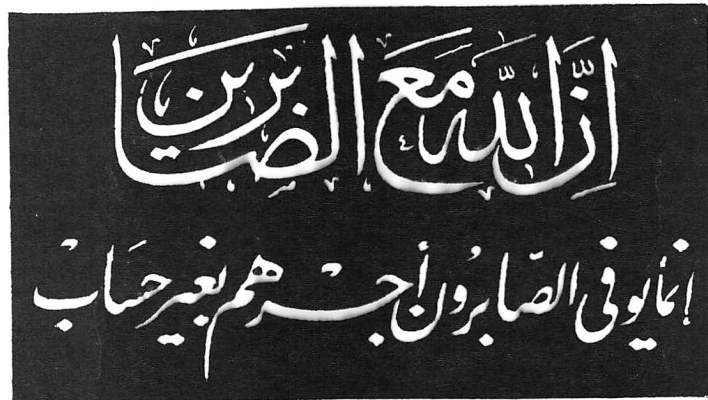 إنَّ اللّٰه مَعَ الصَّابرين
إنمّا يوفى الصّابرُون أجْرهم بغير حسَابْ